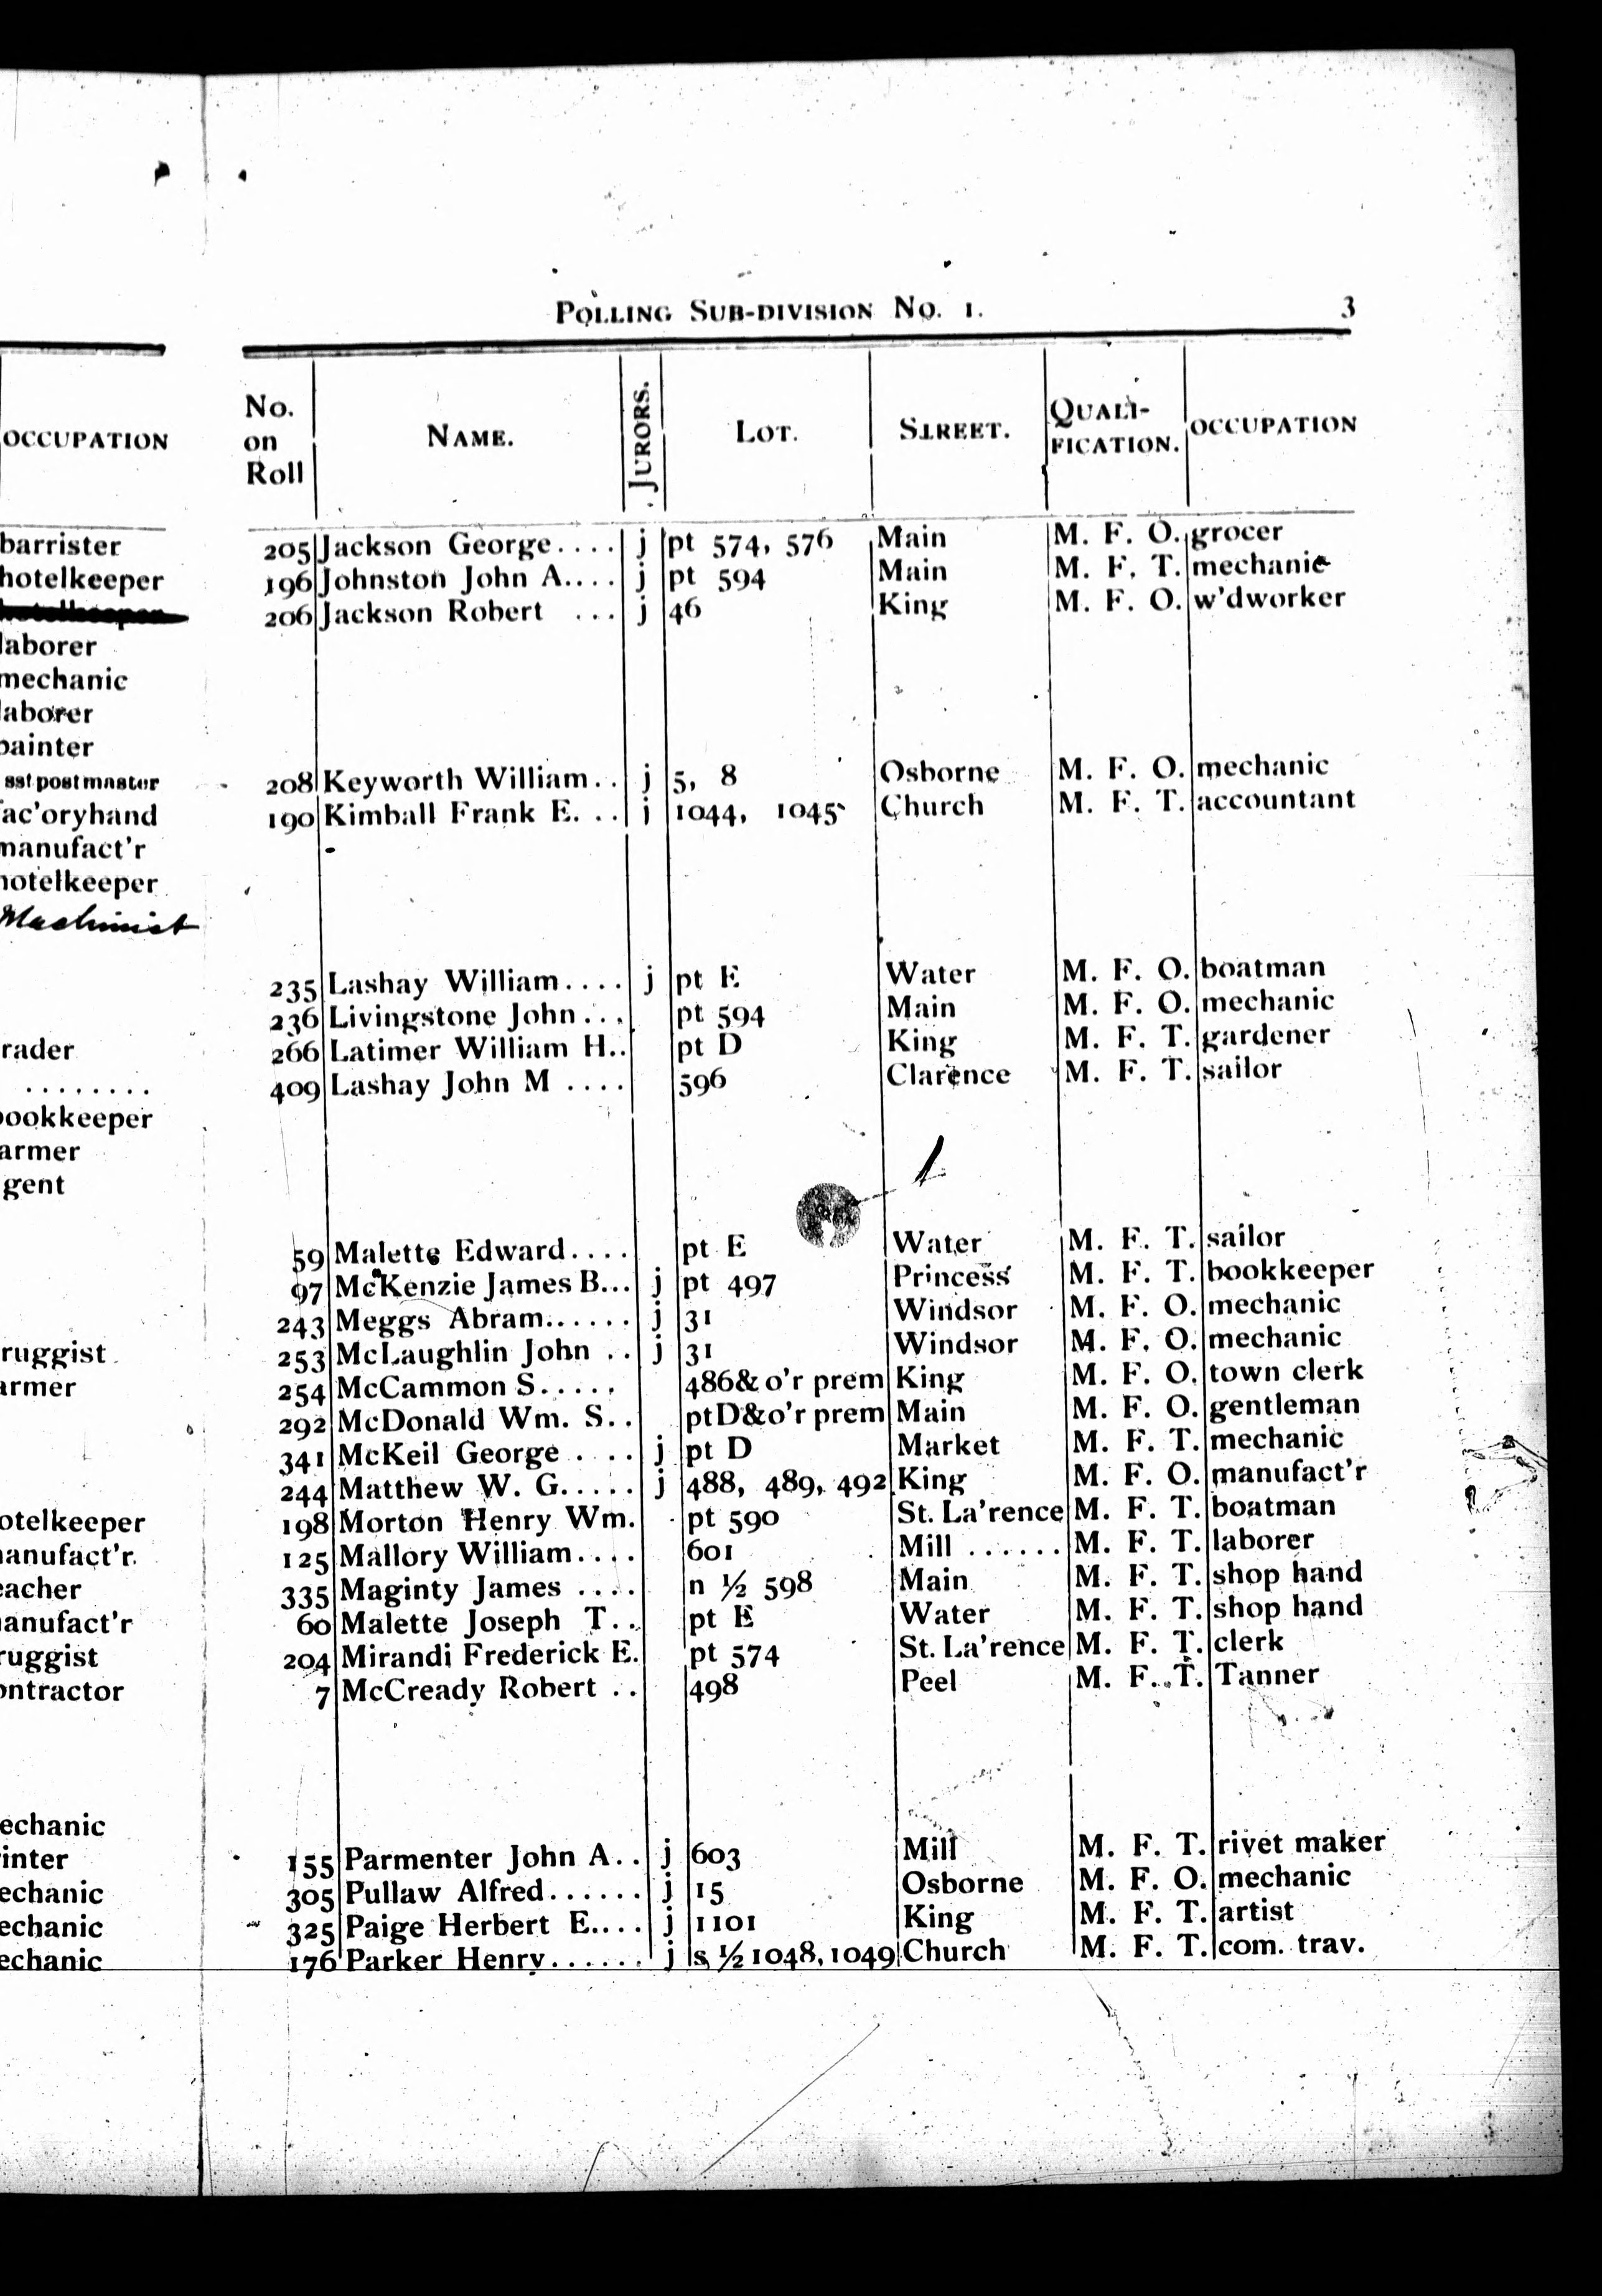 OCCUPATION
barrister
hotelkeeper
laborer
mechanic
laborer
painter
sst postmaster
fac'oryhand
manufact'r
hotelkeeper
Machinist
rader
........
ookkeeper
armer
gent
ruggist
armer
otelkeeper
anufact'r.
eacher
anufact'r
ruggist
ontractor
echanic
inter
echanic
echanic
echanic
POLLING SUB-DIVISION NO. 1. 3
No. on Roll NAME. JURORS. LOT. STREET. QUALI-FICATION. OCCUPATION
205 Jackson George.... j pt 574, 576 Main M. F. O. grocer
196 Johnston John A.... j pt 594 Main M. F. T. mechanic
206 Jackson Robert ... j 46 King M. F. O. w'dworker
208 Keyworth William.. j 5, 8 Osborne M. F. O. mechanic
190 Kimball Frank E. .. j 1044, 1045 Church M. F. T. accountant
235 Lashay William.... j pt E Water M. F. O. boatman
236 Livingstone John... pt 594 Main M. F. O. mechanic
266 Latimer William H.. pt D King M. F. T. gardener
409 Lashay John M .... 596 Clarence M. F. T. sailor
59 Malette Edward.... pt E Water M. F. T. sailor
97 McKenzie James B... j pt 497 Princess M. F. T. bookkeeper
243 Meggs Abram...... j 31 Windsor M. F. O. mechanic
253 McLaughlin John .. j 31 Windsor M. F. O. mechanic
254 McCammon S..... 486& o'r prem King M. F. O. town clerk
292 McDonald Wm. S.. ptD&o'r prem Main M. F. O. gentleman
341 McKeil George .... j pt D Market M. F. T. mechanic
244 Matthew W. G..... j 488, 489, 492 King M. F. O. manufact'r
198 Morton Henry Wm. pt 590 St. La'rence M. F. T. boatman
125 Mallory William.... 601 Mill ...... M. F. T. laborer
335 Maginty James .... n ½ 598 Main M. F. T. shop hand
60 Malette Joseph T... pt E Water M. F. T. shop hand
204 Mirandi Frederick E. pt 574 St. La'rence M. F. T. clerk
7 McCready Robert .. 498 Peel M. F. T. Tanner
155 Parmenter John A.. j 603 Mill M. F. T. rivet maker
305 Pullaw Alfred...... j 15 Osborne M. F. O. mechanic
325 Paige Herbert E.... j 1101 King M. F. T. artist
176 Parker Henry...... j s ½ 1048, 1049 Church M. F. T. com. trav.